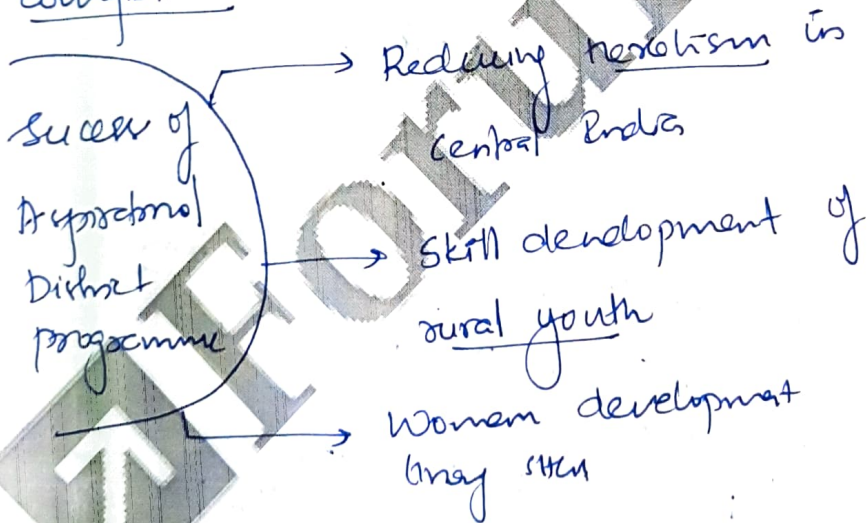 Sucess of
Aspirational
District
programme
Reducing naxalism in
central India
Skill development of
rural youth
Women development
SHG
Forum